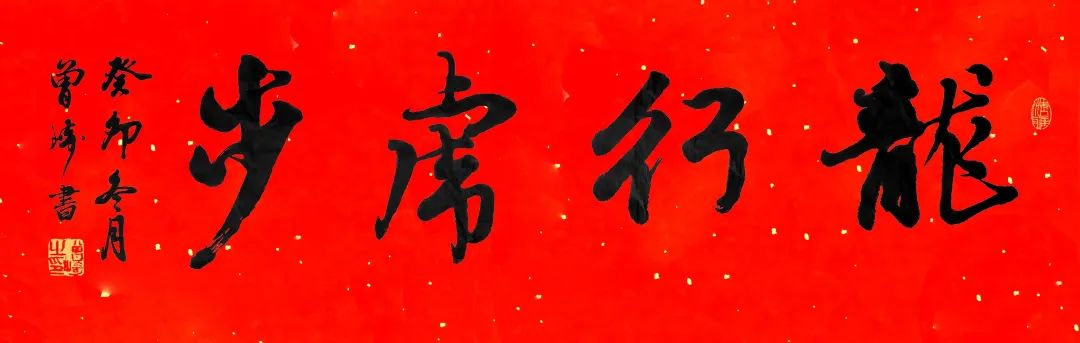 龍行虎步
癸卯冬月
曾琦書